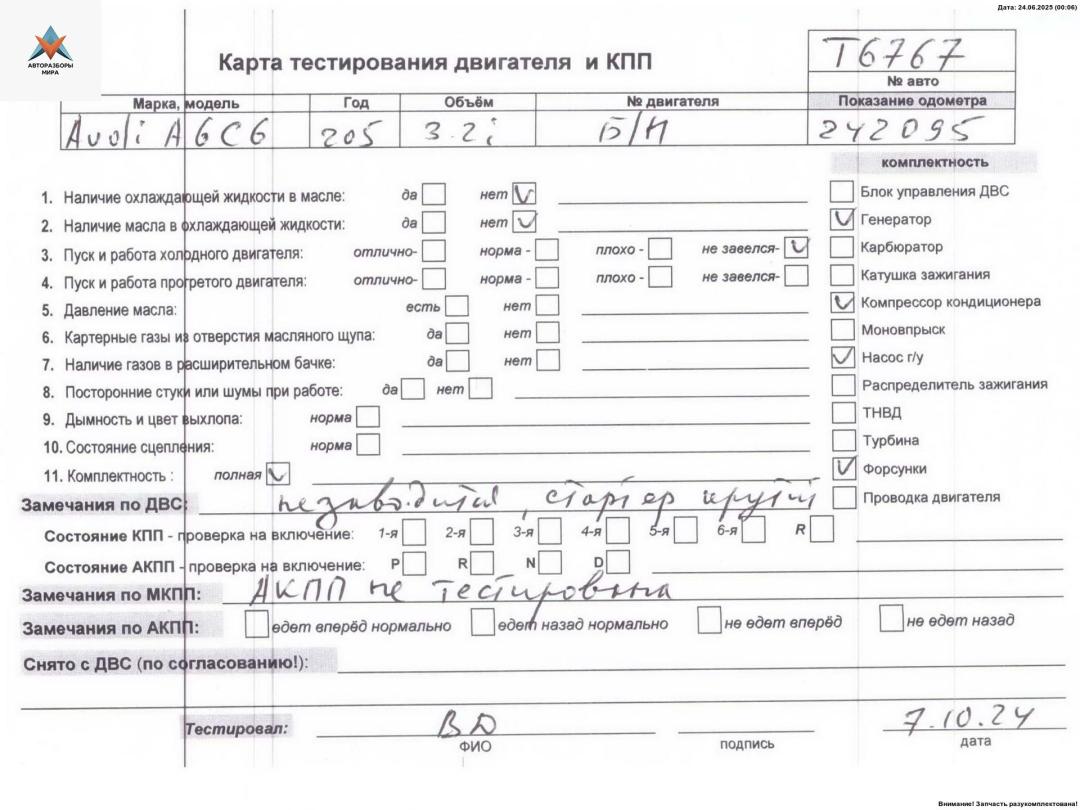 Дата: 24.06.2025 (00:06)
АВТОРАЗБОРЫ
МИРА
Карта тестирования двигателя и КПП
Т6767
№ авто
Марка, модель Год Объём № двигателя Показание одометра
Audi A6C6 205 3.2i Б/Н 242095
комплектность
1. Наличие охлаждающей жидкости в масле: да нет
Блок управления ДВС
2. Наличие масла в охлаждающей жидкости: да нет
Генератор
3. Пуск и работа холодного двигателя: отлично- норма - плохо - не завелся-
Карбюратор
4. Пуск и работа прогретого двигателя: отлично- норма - плохо - не завелся-
Катушка зажигания
5. Давление масла: есть нет
Компрессор кондиционера
6. Картерные газы из отверстия масляного щупа: да нет
Моновпрыск
7. Наличие газов в расширительном бачке: да нет
Насос г/у
8. Посторонние стуки или шумы при работе: да нет
Распределитель зажигания
9. Дымность и цвет выхлопа: норма
ТНВД
10. Состояние сцепления: норма
Турбина
11. Комплектность : полная
Форсунки
Замечания по ДВС: не заводится, стартер крутит
Проводка двигателя
Состояние КПП - проверка на включение: 1-я 2-я 3-я 4-я 5-я 6-я R
Состояние АКПП - проверка на включение: P R N D
Замечания по МКПП: АКПП не тестирована
Замечания по АКПП: едет вперёд нормально едет назад нормально не едет вперёд не едет назад
Снято с ДВС (по согласованию!):
Тестировал: ВД 7.10.24
ФИО подпись дата
Внимание! Запчасть разукомплектована!